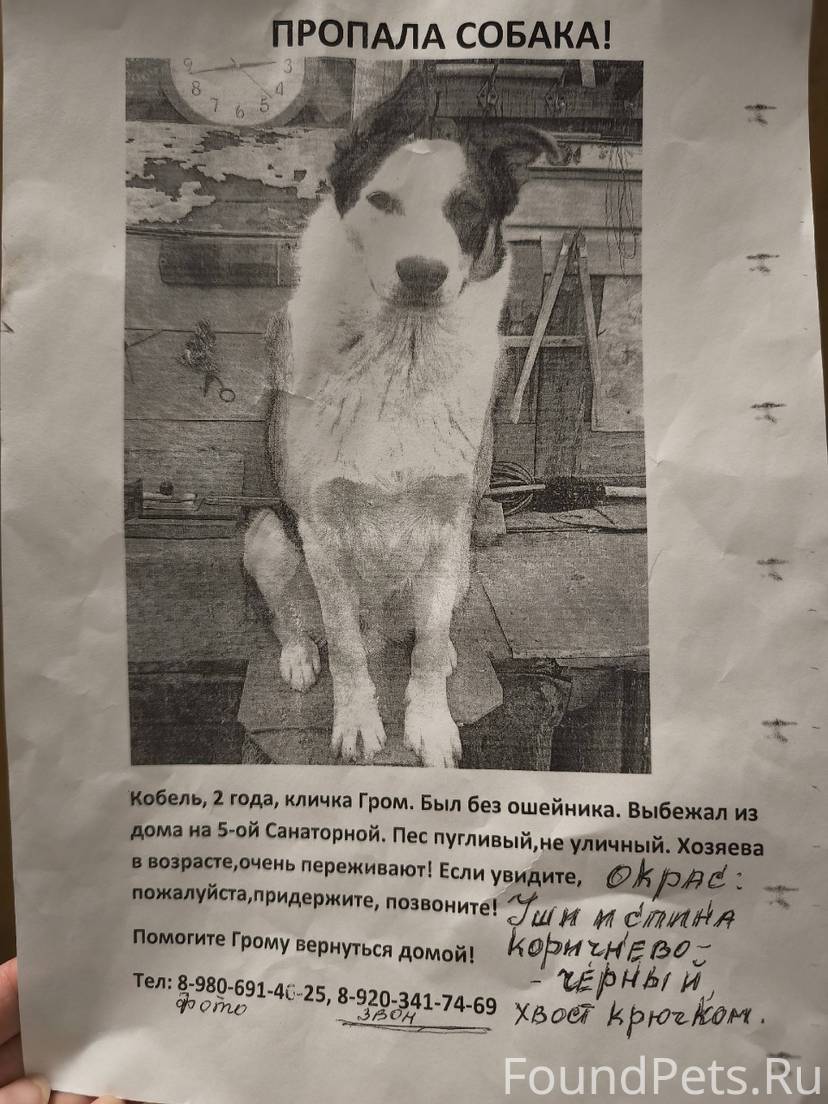 ПРОПАЛА СОБАКА!
9 3
8 4
7 6 5
Кобель, 2 года, кличка Гром. Был без ошейника. Выбежал из
дома на 5-ой Санаторной. Пес пугливый,не уличный. Хозяева
в возрасте,очень переживают! Если увидите,
пожалуйста,придержите, позвоните!
Помогите Грому вернуться домой!
Тел: 8-980-691-4 -25, 8-920-341-74-69
фото звон
Окрас:
Уши и спина
коричнево-
- чёрный,
хвост крючком.
FoundPets.Ru